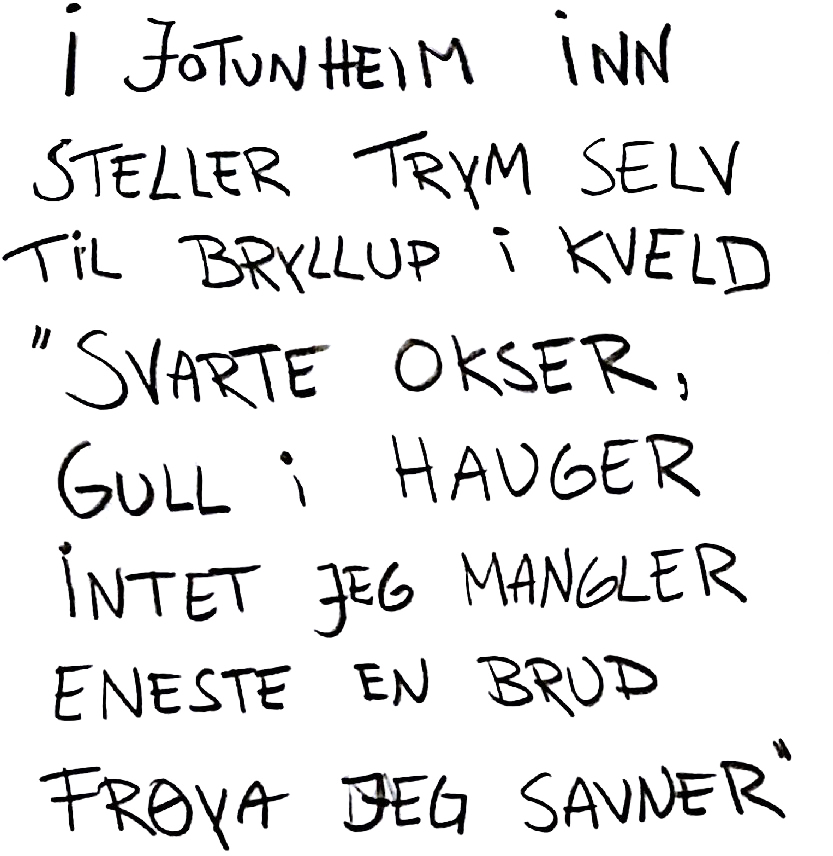 I JOTUNHEIM INN
STELLER TRYM SELV
TIL BRYLLUP I KVELD
"SVARTE OKSER,
GULL I HAUGER
INTET JEG MANGLER
ENESTE EN BRUD
FRØYA JEG SAVNER"